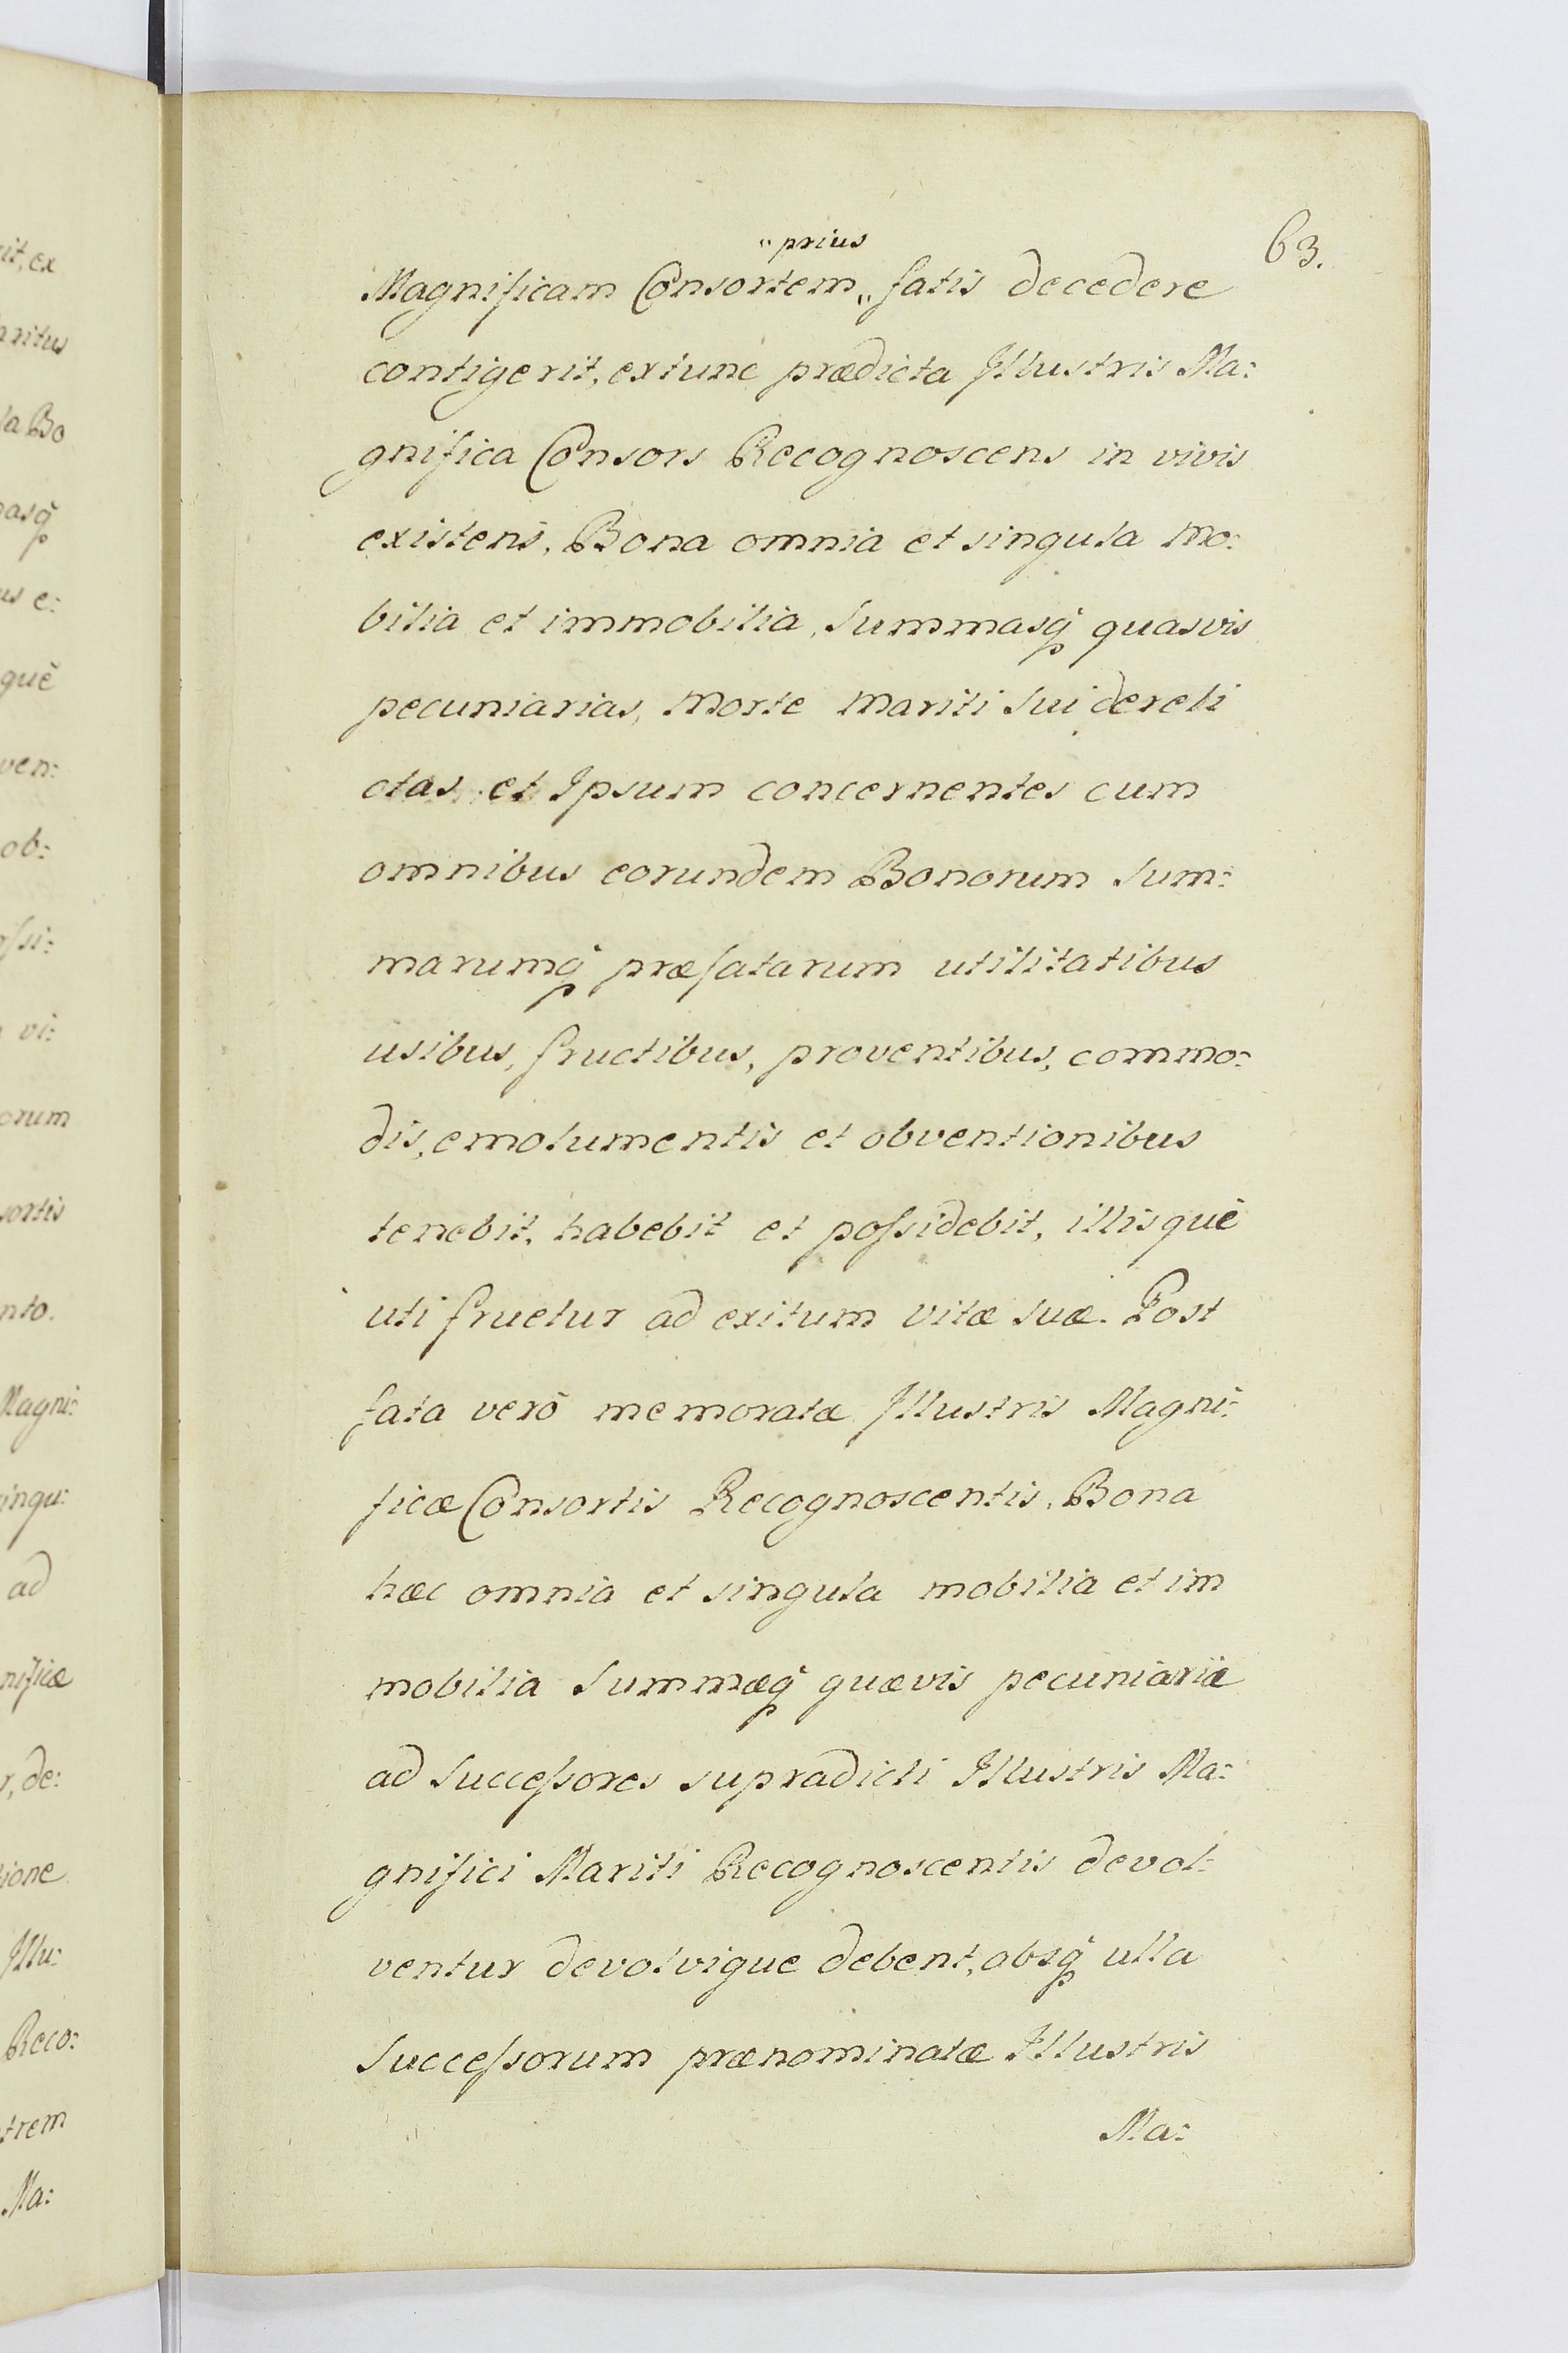 63.
„prius
Magnificam Consortem„ fatis decedere
contigerit, extunc prædicta Illustris Ma:
gnifica Consors Recognoscens in vivis
existens, Bona omnia et singula Mo:
bilia et immobilia, Summasq̃ quasvis
pecuniarias, Morte Mariti Sui dereli
ctas et Ipsum concernentes cum
omnibus eorundem Bonorum Sum:
marumq̃ præfatarum utilitatibus
usibus, fructibus, proventibus, commo:
dis, emolumentis et obventionibus
tenebit, habebit et poſsidebit, illisquè
uti fruetur ad exitum vitæ suæ. Post
fata verò memoratæ Illustris Magni:
ficæ Consortis Recognoscentis, Bona
hæc omnia et singula mobilia et im
mobilia Summæq̃ quævis pecuniariæ
ad Succeſsores supradicti Illustris Ma:
gnifici Mariti Recognoscentis devol:
ventur devolvique debent, absq̃ ulla
Succeſsorum prænominatæ Illustris
Ma:
it, ex
ritus
la Bo
asq̃
us e:
què
ven:
ob:
ſsi:
vi:
orum
sortis
nto.
Magni:
ingu:
ad
nificæ
r, de:
tione
Illu:
Reco:
trem
Ma: